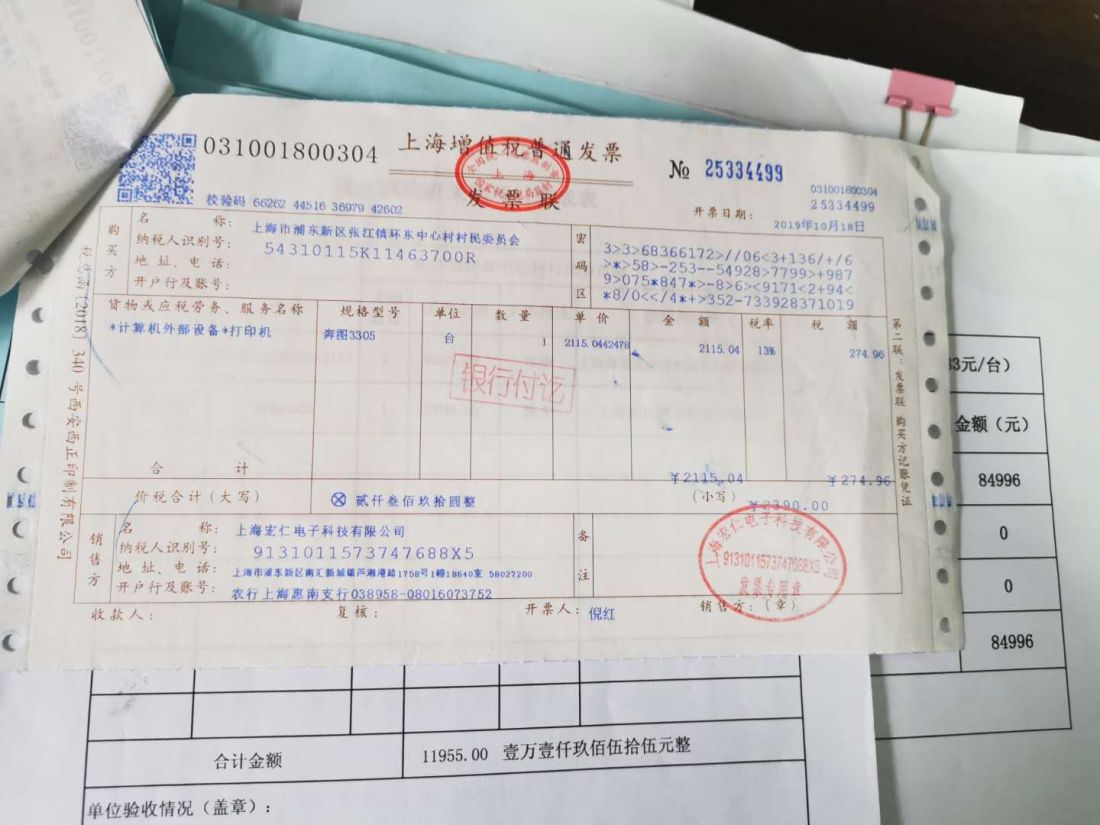 031001800304
上海增值税普通发票
发票联
全国统一发票监制章
上海
国家税务总局监制
№ 25334499
031001800304
25334499
校验码 66262 44516 36979 42602
开票日期: 2019年10月18日
购买方
名称: 上海市浦东新区张江镇环东中心村村民委员会
纳税人识别号: 54310115K11463700R
地址、电话:
开户行及账号:
密码区
3>3>68366172>//06<3+136/+/6
>*>58>-253--54928>7799>+987
9>075*847*>-8>6<9171<2+94<
*8/0<</4*+>352-733928371019
货物或应税劳务、服务名称 规格型号 单位 数量 单价 金额 税率 税额
*计算机外部设备*打印机 奔图3305 台 1 2115.0442478 2115.04 13% 274.96
银行付讫
合计 ¥2115.04 ¥274.96
价税合计(大写) ⊗ 贰仟叁佰玖拾圆整 (小写) ¥2390.00
销售方
名称: 上海宏仁电子科技有限公司
纳税人识别号: 9131011573747688X5
地址、电话: 上海市浦东新区南汇新城镇芦潮港路1758号1幢18640室 58027200
开户行及账号: 农行上海惠南支行038958-08016073752
备注
收款人: 复核: 开票人: 倪红 销售方:(章)
上海宏仁电子科技有限公司
9131011573747688X5
发票专用章
第二联:发票联 购买方记账凭证
[2018]340号西安西正印制有限公司
元/台)
金额(元)
84996
0
0
84996
合计金额 11955.00 壹万壹仟玖佰伍拾伍元整
单位验收情况(盖章):